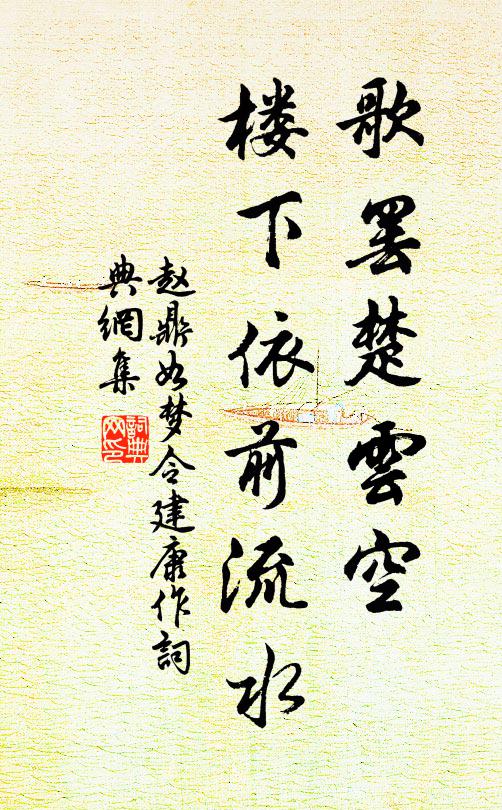 歌罢楚雲空
楼下依前流水
赵鼎如梦令建康作詞
典網集
詞典
网印